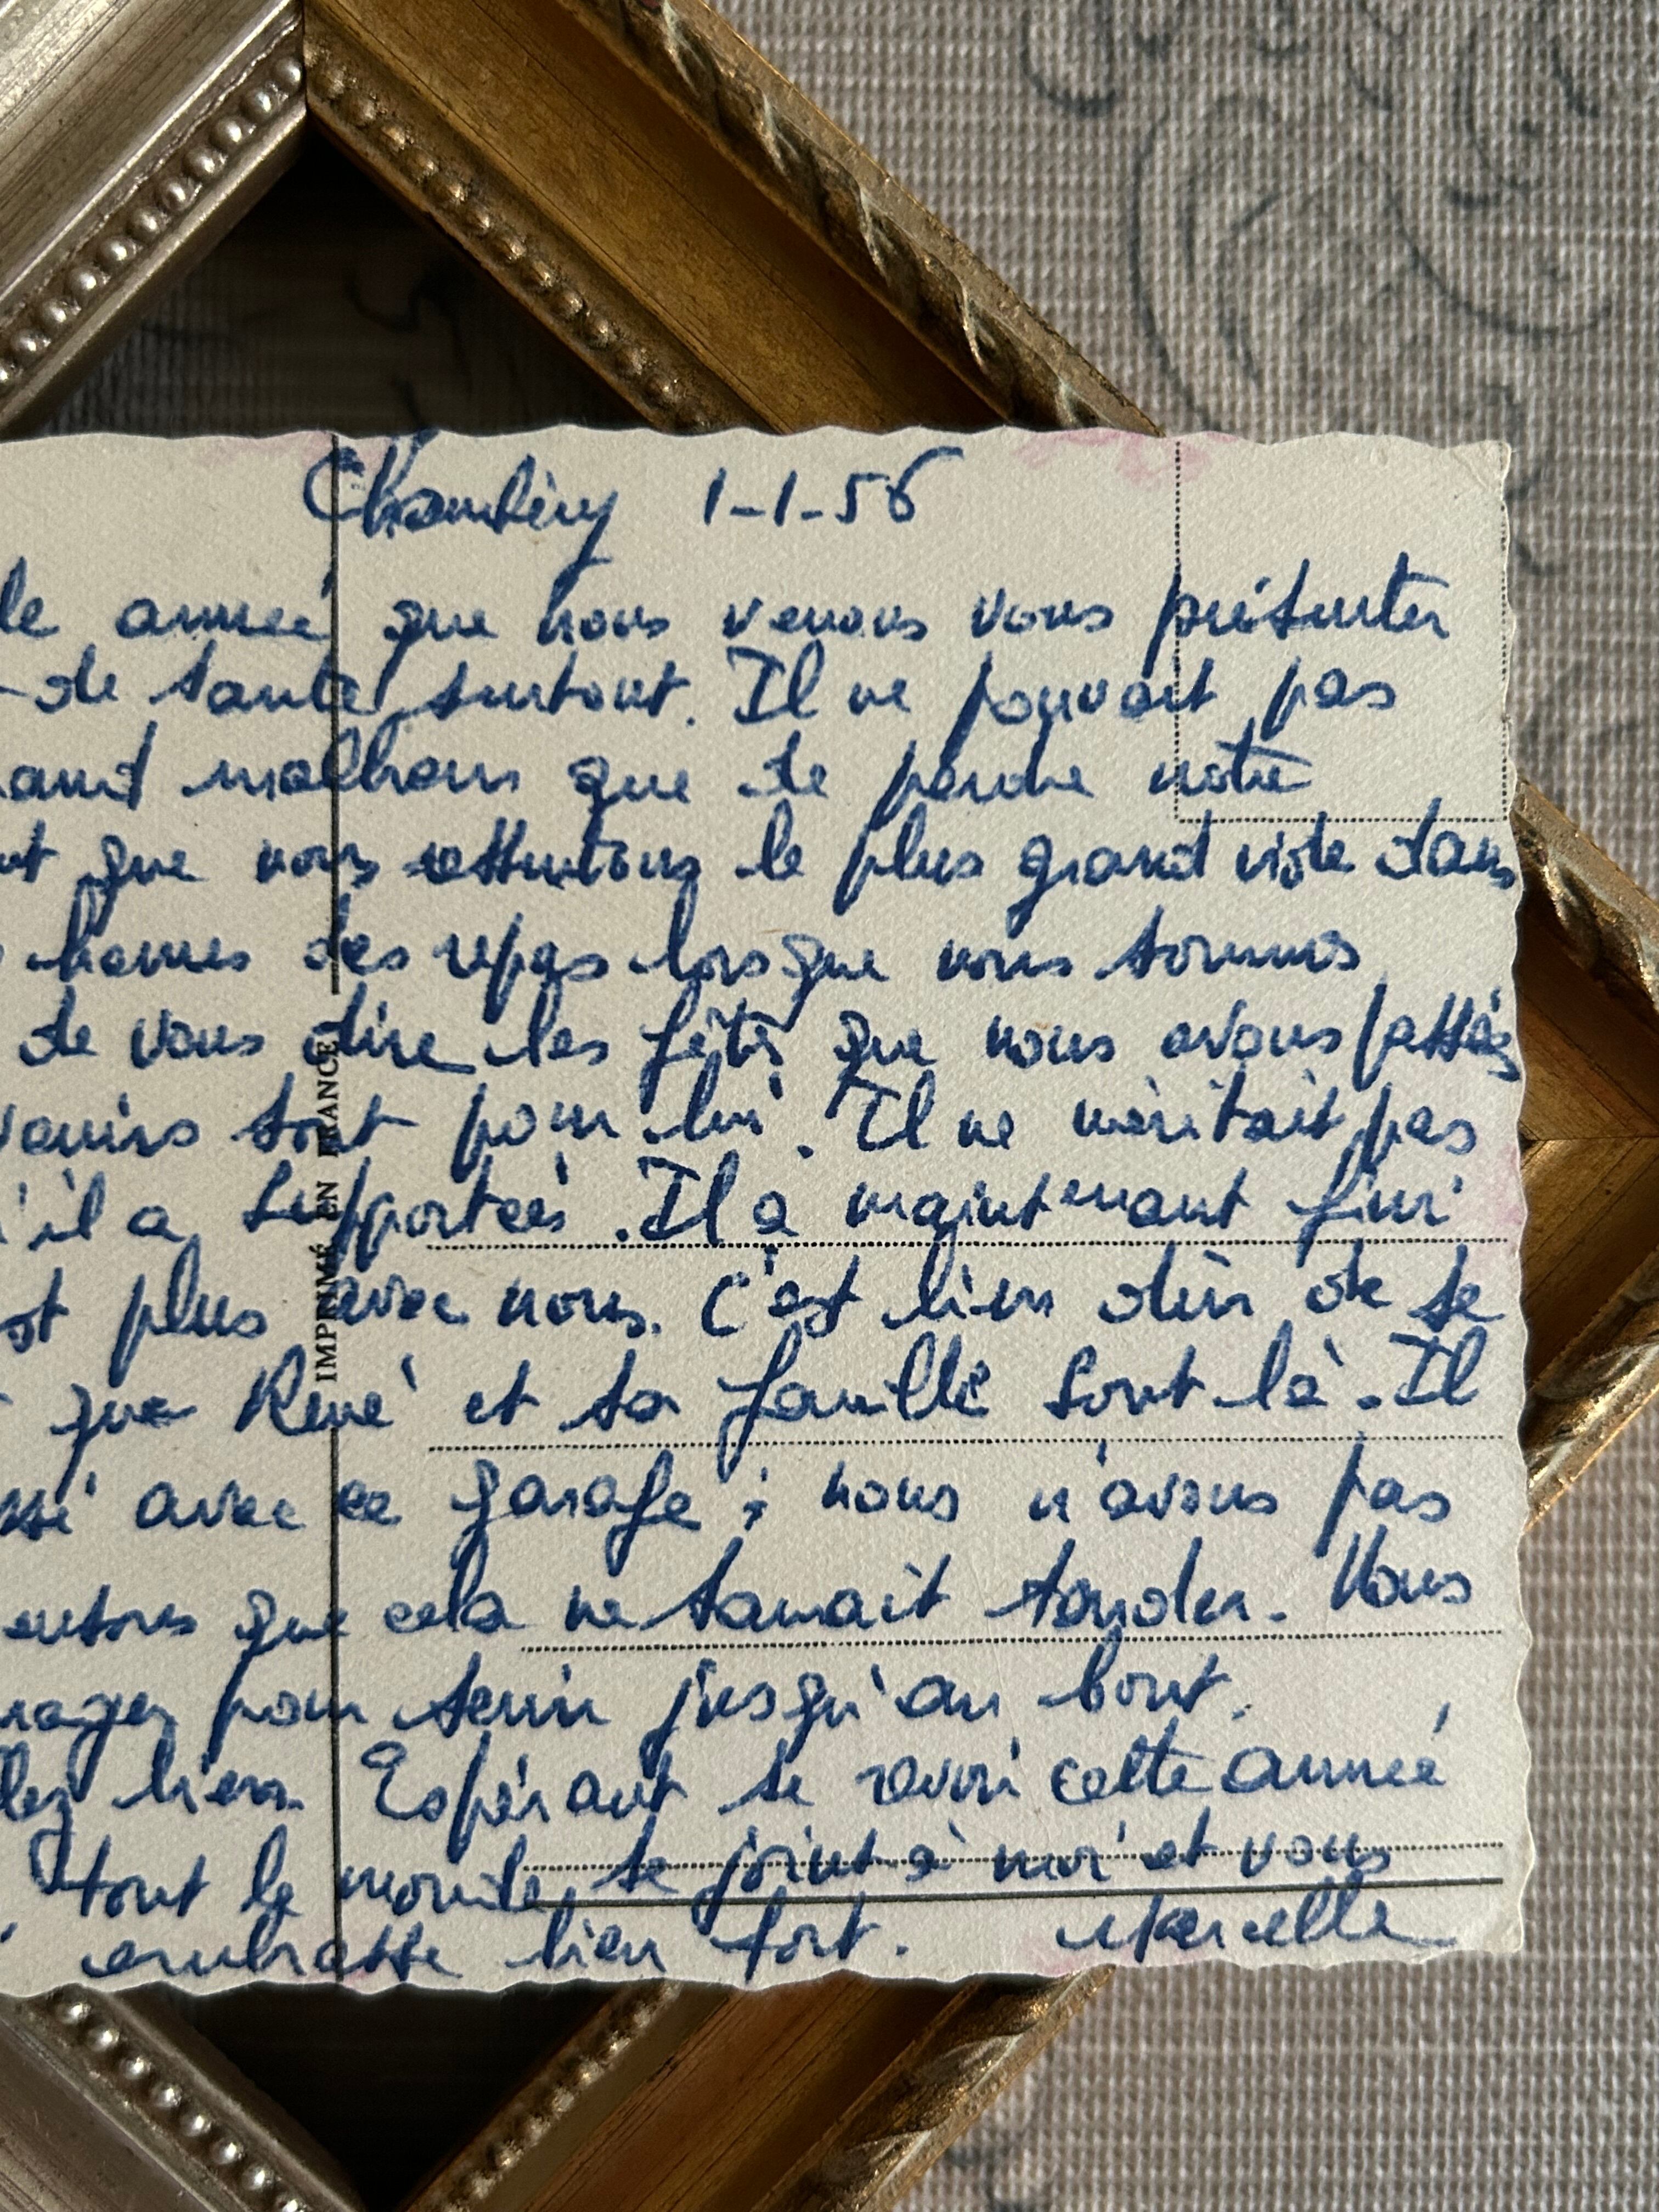 Chambéry 1-1-56
le année que nous venons vous présenter
de santé surtout. Il ne pouvait pas
and malheur que de perdre notre
nt que nous ressentons le plus grand vide dans
heures des repas lorsque nous sommes
de vous dire les fêtes que nous avons passées
venirs sont pour lui. Il ne méritait pas
'il a supportées. Il a maintenant fini
st plus avec nous. C'est bien dur de se
que René et sa famille sont là. Il
ssé avec ce garage ; nous n'avons pas
entons que cela ne saurait tarder. Nous
rager pour tenir jusqu'au bout.
lez bien. Espérant se revoir cette année
tout le monde se joint à moi et vous
embrasse bien fort. Marcelle
IMPRIMÉ EN FRANCE